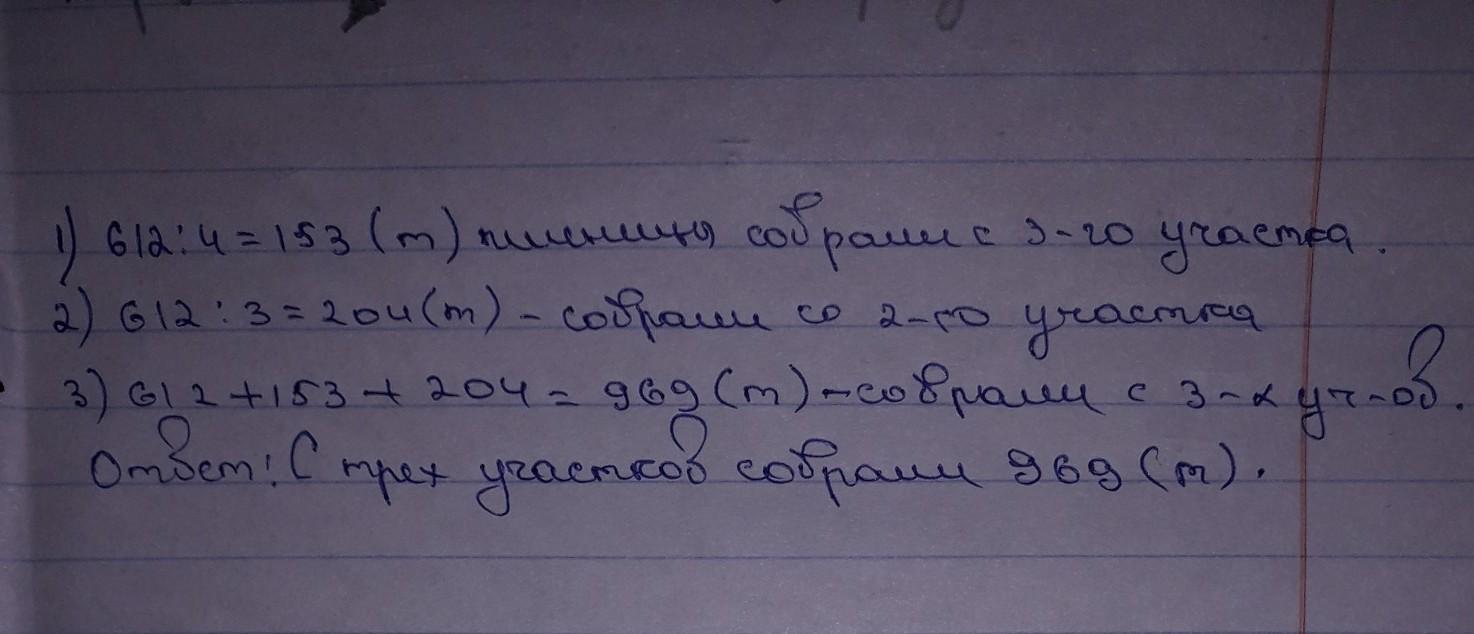 1) 612:4=153(т) пшеницы собрали с 3-го участка.
2) 612:3=204(т) - собрали со 2-го участка
3) 612+153+204=969(т) - собрали с 3-х уч-ов.
Ответ: С трех участков собрали 969(т).